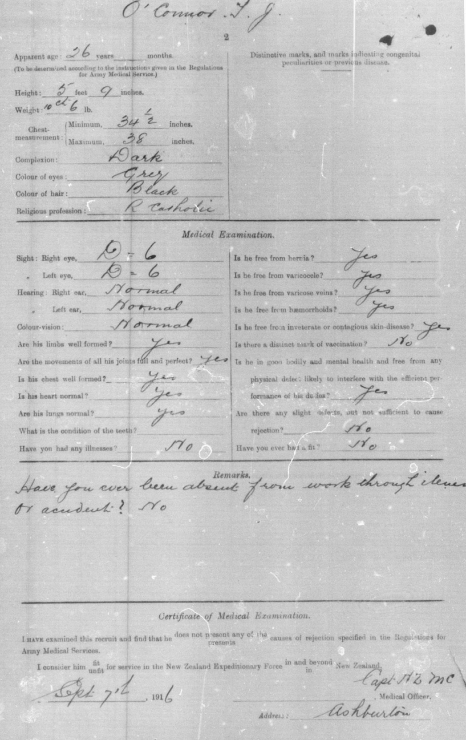 O'Connor T. J.
2
Apparent age: 26 years months.
(To be determined according to the instructions given in the Regulations
for Army Medical Service.)
Height: 5 feet 9 inches.
Weight: 10 cst 6 lb.
Chest-measurement: Minimum, 34 1/2 inches.
Maximum, 38 inches.
Complexion: Dark
Colour of eyes: Grey
Colour of hair: Black
Religious profession: R Catholic
Distinctive marks, and marks indicating congenital
peculiarities or previous disease.
Medical Examination.
Sight: Right eye, D = 6
„ Left eye, D = 6
Hearing: Right ear, Normal
„ Left ear, Normal
Colour-vision: Normal
Are his limbs well formed? Yes
Are the movements of all his joints full and perfect? Yes
Is his chest well formed? Yes
Is his heart normal? Yes
Are his lungs normal? Yes
What is the condition of his teeth?
Have you had any illnesses? No
Is he free from hernia? Yes
Is he free from varicocele? Yes
Is he free from varicose veins? Yes
Is he free from hæmorrhoids? Yes
Is he free from inveterate or contagious skin-disease? Yes
Is there a distinct mark of vaccination? No
Is he in good bodily and mental health and free from any
physical defect likely to interfere with the efficient per-
formance of his duties? Yes
Are there any slight defects, but not sufficient to cause
rejection? No
Have you ever had a fit? No
Remarks.
Have you ever been absent from work through illness
or accident? No
Certificate of Medical Examination.
I HAVE examined this recruit and find that he does not present any of the causes of rejection specified in the Regulations for
presents
Army Medical Services.
I consider him fit for service in the New Zealand Expeditionary Force in and beyond New Zealand.
unfit in
Capt NZ MC
Sept 7th, 1916
Medical Officer.
Address: Ashburton